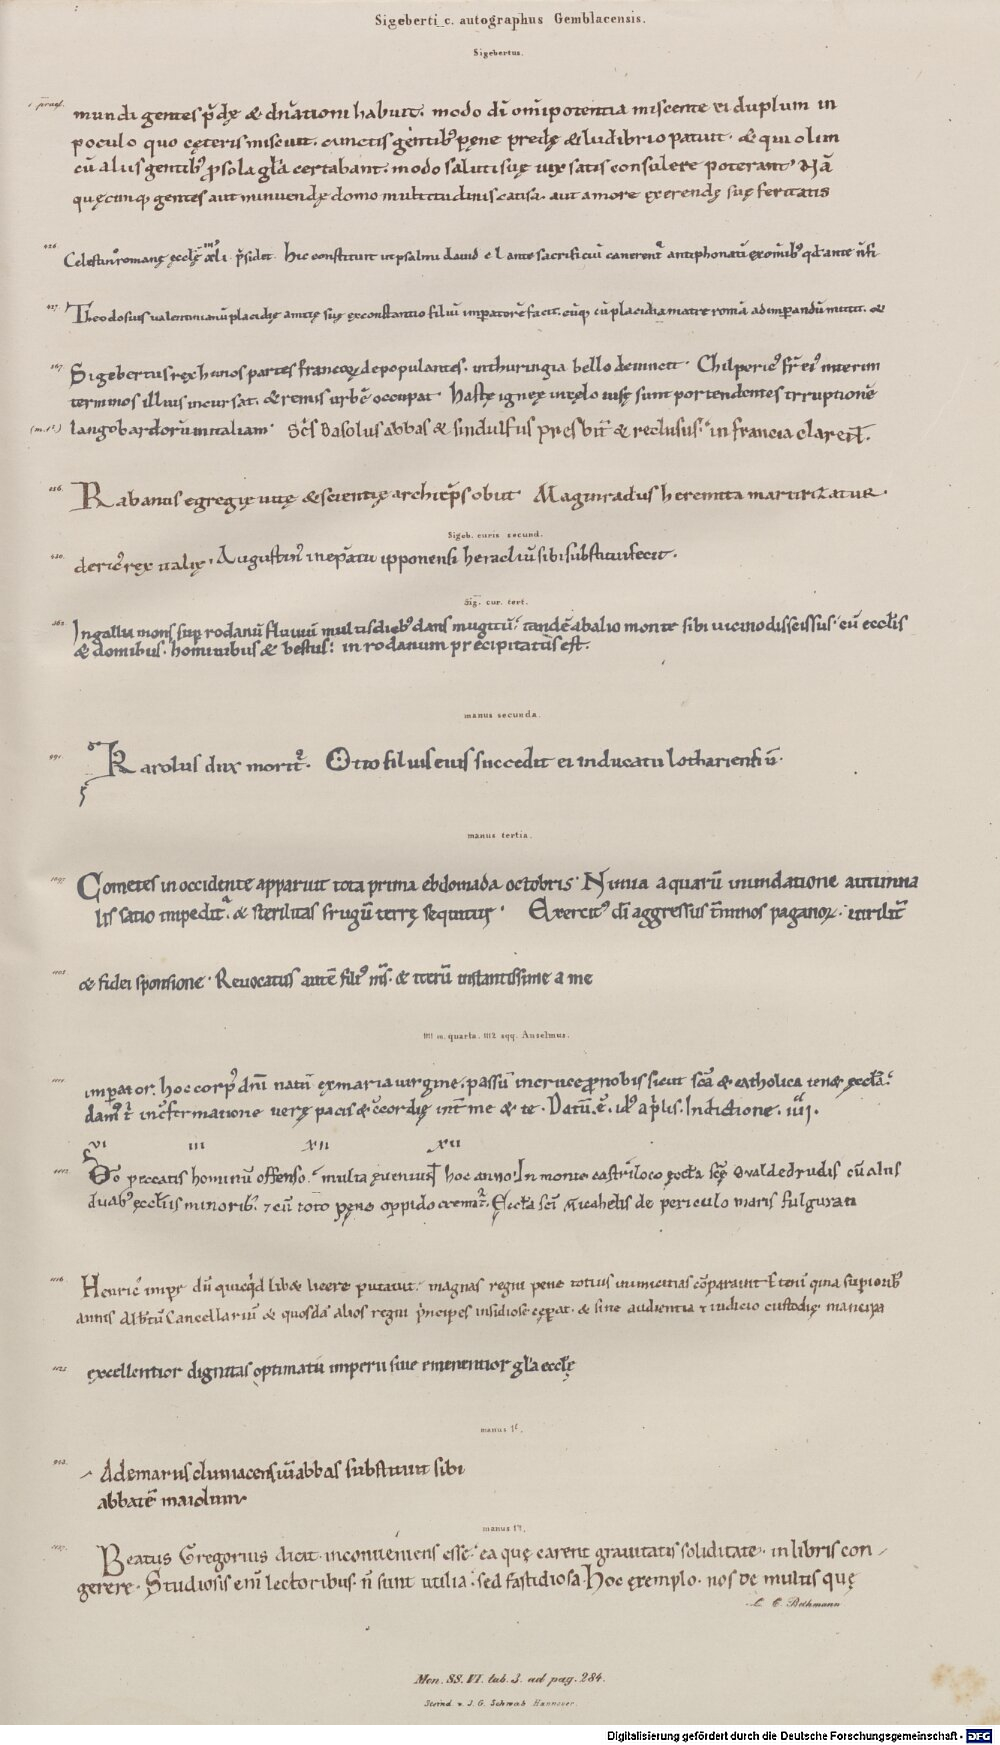 Sigeberti c. autographus Gemblacensis.
Sigebertus.
mundi gentes p̄dę & dn̄ationi habuit. modo dī om̄ipotentia miscente ei duplum in
poculo quo cęteris miscuit. cunctis gentib; pęne predę & ludibrio patuit. & qui olim
cū aliis gentib; p sola gl̄a certabant. modo saluti suę uix satis consulere poterant. Nā
quęcunq; gentes aut minuendę domo multitudinis causa. aut amore exerendę suę feritatis
426. Celestin᾽ romanę ęcclę p̄sidet. Hic constituit ut psalmi dauid cl ante sacrificiū canerent᷑ antiphonati ex omīb; qd ante n̄ fi
427. Theodosius ualentinianū placidię amitę suę ex constantio filiū imperatorē facit. eūq; cū placidia matre romā ad imperandū mittit. &
567 Sigebertus rex hunos partes francorꝝ depopulantes. in thuringia bello deuincit. Chilperic᾽ fr̄ ei᾽ interim
terminos illius incursat. & remis urbē occupat. Hastę ignęę in cęlo uisę sunt portendentes irruptionē
(m. 1ᵉ) langobardorum in italiam. Sc̄s Basolus abbas & sindulfus presbit̄ & reclusus. in francia claret.
856. Rabanus egregię uitę & scientię archiep̄s obiit. Maginradus heremita martirizatur.
Sigeb. curis secund.
430. deric᾽ rex italię. Augustin᾽ in ep̄atu ipponensi heracliū sibi substitui fecit.
Sig. cur. tert.
562. In gallia mons sup rodanū fluuiū multis dieb; dans mugitū. tandē ab alio monte sibi uicino discissus. cū eccl̄is
& domibus. hominibus & bestiis. in rodanum precipitatus est.
manus secunda.
991. Karolus dux morit᷑. Otto filius eius succedit ei in ducatu lothariensiū.
manus tertia.
1097 Cometes in occidente apparuit tota prima ebdomada octobris. Nimia aquarū inundatione autumna
lis satio impedit᷑. & sterilitas frugū terrę sequitur. Exercit᾽ dī aggressus t̄minos paganoꝝ. uirilit̄
1105 & fidei sponsione. Reuocatus autē fili᾽ m̄s. & iterū instantissime a me
1111 m. quarta. 1112 sqq. Anselmus.
1111. imperator. hoc corp᾽ dn̄i natū ex maria uirgine. passū in cruce pro nobis sicut sc̄a & catholica tenet ęccl̄a.
dam᾽ t̄ in c̄firmatione uerę pacis & c̄cordię int̄ me & te. Datū ē. id᾽ ap̄lis. Indictione. iiij.
vi iii xii xii
1112. Do peccatis hominū offenso. multa eueniunt hoc anno. In monte castriloco ęccl̄a sc̄ę Waldedrudis cū aliis
duab; ęccl̄iis minorib;. 7 cū toto pęne oppido cremat᷑. Eccl̄a sc̄i Michahelis de periculo maris fulgurati
1116. Henric᾽ impr̄ dū quicq̄d lib& licere putatur. magnas regni pene totius inimicitias cōparauit. Etenī quia superiorib;
annis Alb̄tū Cancellariū & quosdā alios regni p̄ncipes insidiose cęperat. & sine audientia 7 iudicio custodię mancipa
1122. excellentior dignitas optimatū imperii siue eminentior gl̄a eccl̄ę
manus 1ᶠ.
948. Ademarus cluniacensiū abbas substituit sibi
abbatē maiolum
manus 1ᵍ.
1137. Beatus Gregorius dicit. inconueniens esse. ea quę carent grauitatis soliditate. in libris con-
gerere. Studiosis enī lectoribus. n̄ sunt utilia. sed fastidiosa. Hoc exemplo. nos de multis quę
L. C. Bethmann
Mon. SS. VI. tab. 3. ad pag. 284.
Steind. v. J. G. Schwab Hannover.
Digitalisierung gefördert durch die Deutsche Forschungsgemeinschaft - DFG